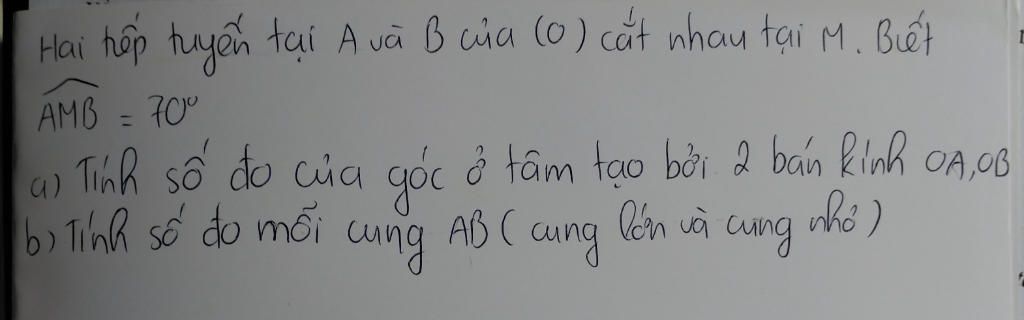 Hai tiếp tuyến tại A và B của (O) cắt nhau tại M. Biết
AMB = 70°
a) Tính số đo của góc ở tâm tạo bởi 2 bán kính OA, OB
b) Tính số đo mỗi cung AB ( cung lớn và cung nhỏ )